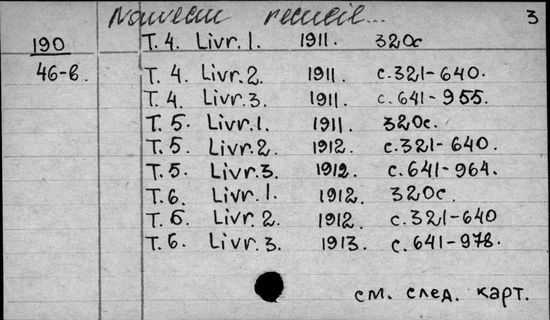 Nouveau recueil... 3
190 T. 4. Livr. 1. 1911. 320c
46-в. T. 4. Livr. 2. 1911. c. 321-640.
T. 4 Livr. 3. 1911. c. 641-955.
T. 5 Livr. 1. 1911. 320c.
T. 5. Livr. 2. 1912. c. 321-640.
T. 5. Livr. 3. 1912. c. 641-964.
T. 6. Livr. 1. 1912. 320c.
T. 6. Livr. 2. 1912. c. 321-640
T. 6. Livr. 3. 1913. c. 641-978.
см. след. карт.